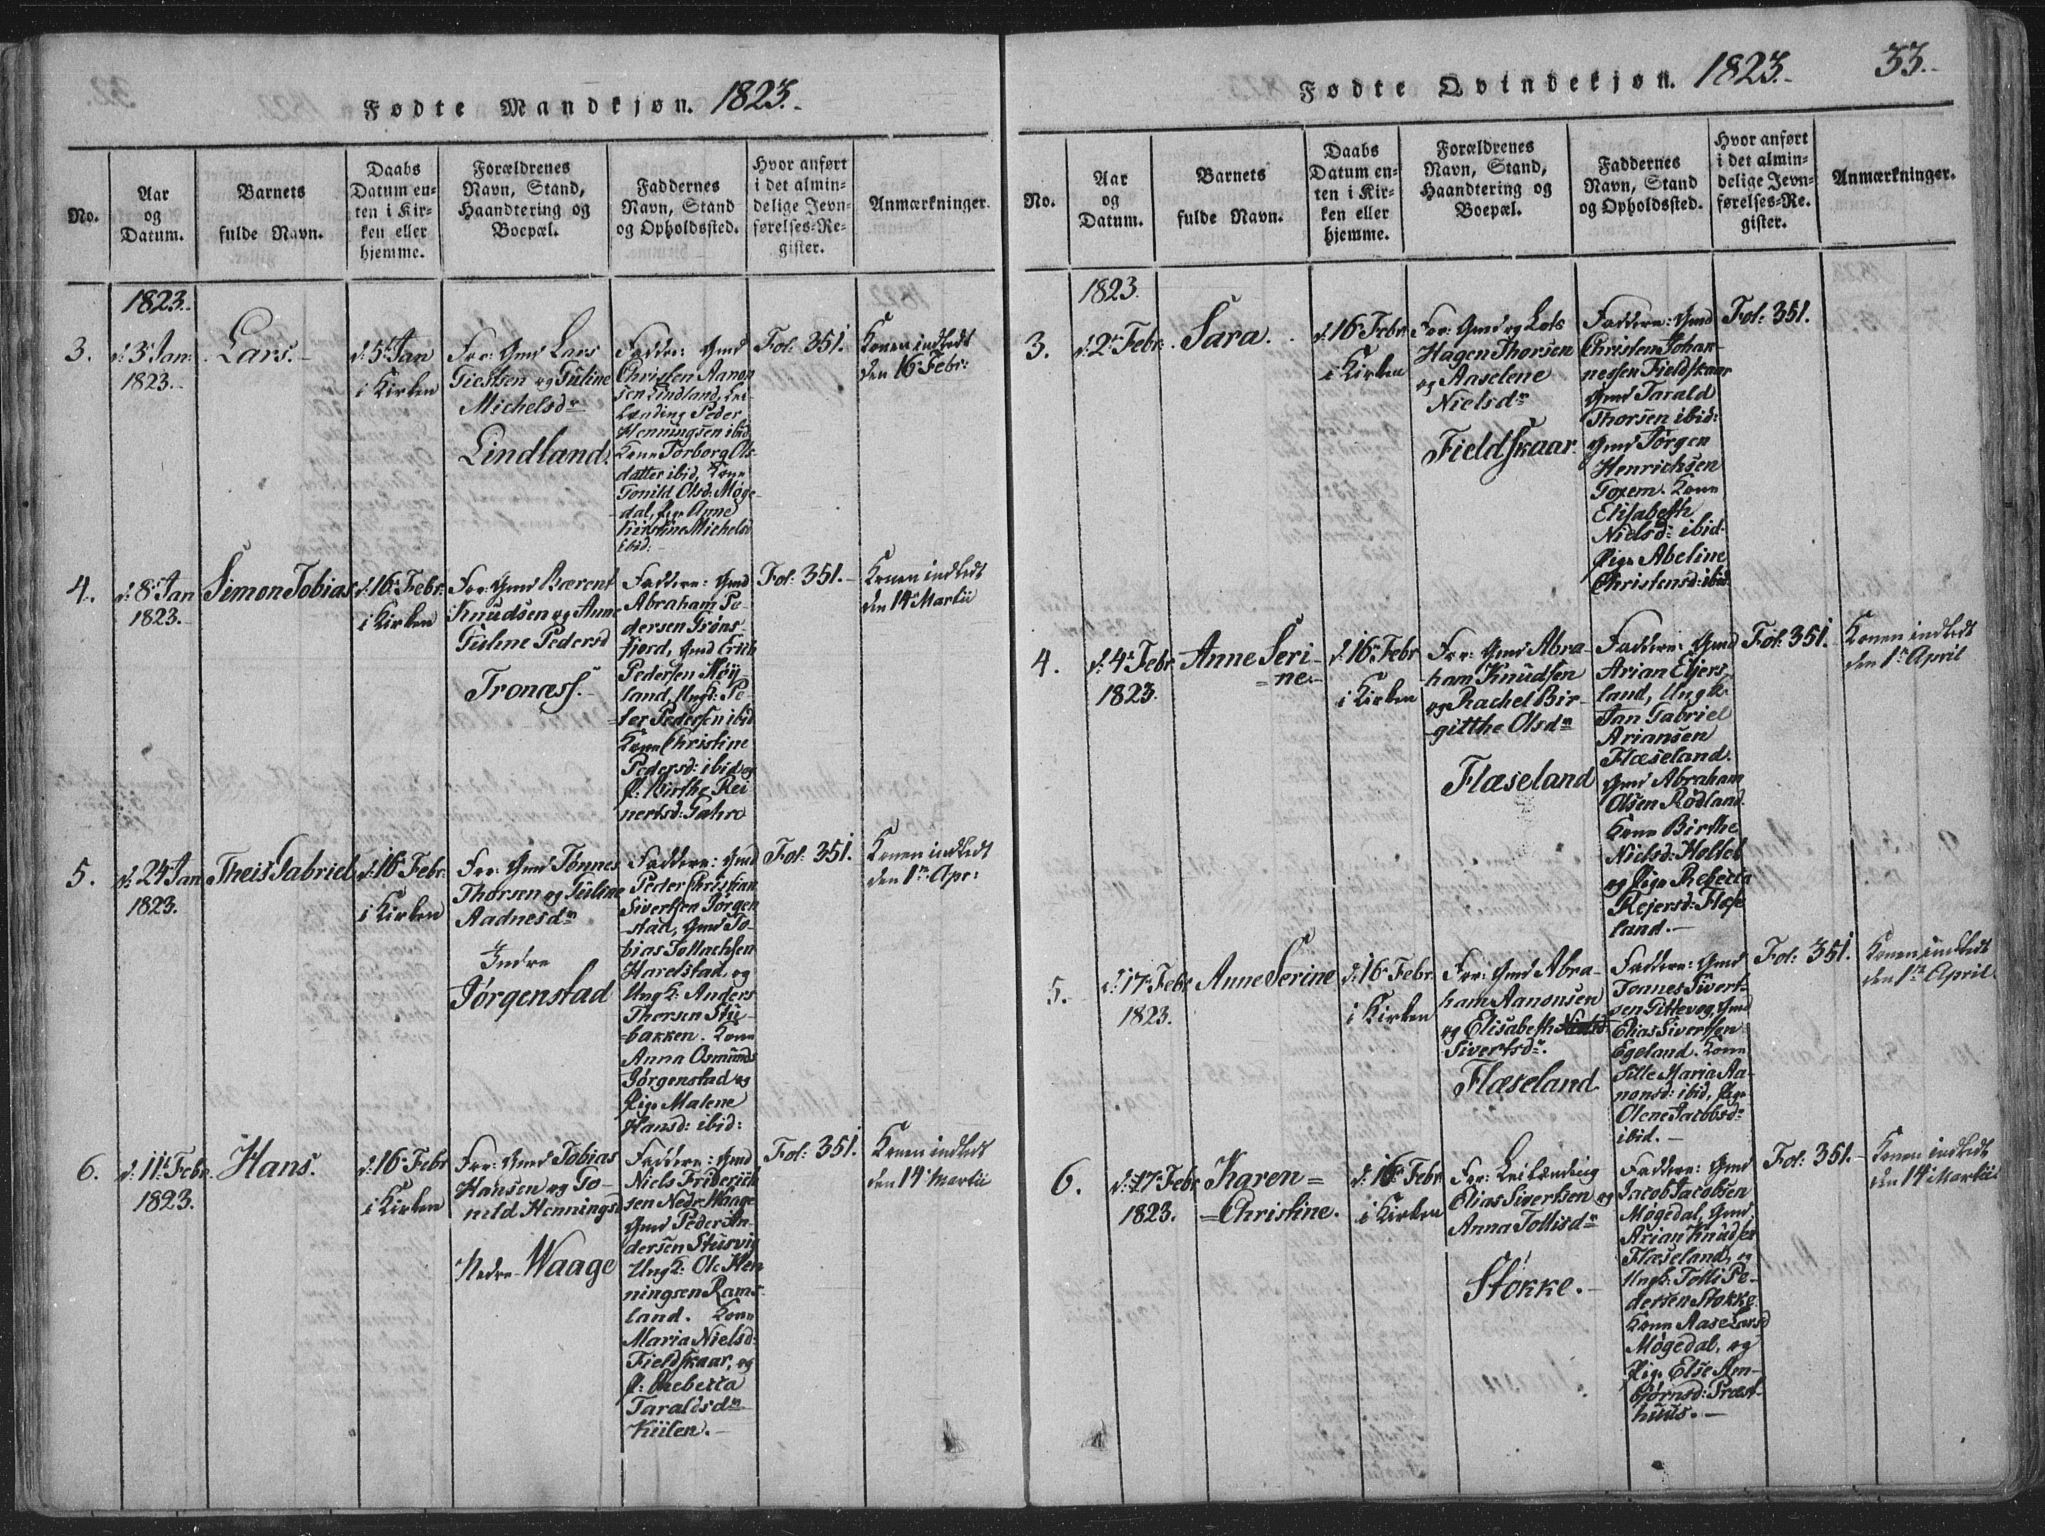 Fødte Mandkjøn. 1823.-
No.
Aar
og
Datum.
Barnets
fulde Navn.
Daabs
Datum en-
ten i Kir-
ken eller
hjemme.
Forældrenes
Navn, Stand,
Haandtering og
Boepæl.
Faddernes
Navn, Stand
og Opholdssted.
Hvor anført
i det almin-
delige Jevn-
førelses-Re-
gister.
Anmærkninger.
1823.
3.
d: 3 Jan:
1823.-
Lars.-
d: 5 Jan
i Kirken
For: Gmd Lars
Giertsen og Guline
Michelsdr
Lindland.
Faddr: Gmd
Christen Aanon
sen Lindland, Lei-
lænding Peder
Henningsen ibid
Kone Torborg Ols-
datter ibid, Kone
Gonild Olsd: Møge-
dal, Pige Anne
Kirstine Michelsd
ibid:-
Fol: 351.
Konen indledt
den 16 Febr:
4.
d: 8 Jan
1823.-
Simon Tobias
d: 16 Febr.
i Kirken
For: Gmd Bærent
Knudsen og Anne
Guline Pedersd
Tronæss.-
Faddere: Gmd
Abraham Pe-
dersen Grøns-
fiord, Gmd Erich
Pedersen Høy
land, Ungk: Pe-
ter Pedersen ibid
Kone Christine
Pedersd: ibid og
P: Birthe Rei
nertsd: Jahre
Fol: 351.-
Konen indledt
den 14 Martii
5.
d: 24 Jan
1823.
Theis Gabriel
d: 16 Febr.
i Kirken
For: Gmd Tønnes
Thorsen og Guline
Aadnesdr
Indre
Jørgenstad
Faddere: Gmd
Peder Christian
Sivertsen Jørgen
stad, Gmd To-
bias Tollachsen
Harelstad, og
Ungk: Anders
Thorsen Stu-
bakken. Kone
Anna Osmunds
Jørgenstad og
Pige Malene
Hansd: ibid:
Fol: 351.
Konen indledt
den 1ste Apr:
6.
d: 11 Febr
1823.
Hans.
d: 16 Febr
i Kirken
For: Gmd Tobias
Hansen og Go-
nild Hennings
Nedre Waage
Faddere: Gmd
Niels Friderich
sen Nedr: Waage
Gmd Peder An-
dersen Stusvig
Ungk: Ole Hen
ningsen Rams-
land. Kone
Maria Nielsd:
Fieldskaar, og
P: Rebecca
Taraldsdr
Kiilen.-
Fol: 351.
Konen indledt
den 14 Martii
Fødte Qvindekjøn. 1823.- 33.-
No.
Aar
og
Datum.
Barnets
fulde Navn.
Daabs
Datum en-
ten i Kir-
ken eller
hjemme.
Forældrenes
Navn, Stand,
Haandtering og
Boepæl.
Faddernes
Navn, Stand
og Opholdssted.
Hvor anført
i det almin-
delige Jevn-
førelses-Re-
gister.
Anmærkninger.
1823.
3.
d: 2 Febr.
Sara.
d: 16 Febr
i Kirken
For: Gmd og Lots
Hagen Thorsen
og Aaselene
Nielsdr
Fieldskaar.
Faddere: Gmd
Christen Johan-
nessen Fieldskaar
Gmd Tarald
Thorsen ibid:
Gmd Jørgen
Henrichsen
Goxem. Kone
Elisabeth
Nielsd: ibid.
Pige Abeline
Christensd: ibid.
Fol: 351.
4.
d: 4 Febr
1823.
Anne Seri-
=ne.-
d: 16 Febr
i Kirken
For: Gmd Abra
ham Knudsen
og Rachel Bir-
gitthe Olsdr
Flæseland
Faddere: Gmd
Arian Ejers-
land, Ungk:
Jan Gabriel
Ariansen
Flæseland.
Gmd Abraham
Olsen Rødland.
Kone Birthe
Nielsd: Holtet
og Pige Rebecca
Rejersd: Flæse
land.-
Fol: 351.
Konen indledt
den 1ste April
5.
d: 17 Febr
1823.
Anne Serine
d: 16 Febr.
i Kirken
For: Gmd Abra-
ham Aanonsen
og Elisabeth
Sivertsdr.
Flæseland
Faddere: Gmd
Tønnes Sivert-
sen Gitlevog, Gmd
Elias Sivertsen
Egeland. Kone
Sille Maria Aa-
nonsd: ibid, Pige
Olene Jacobsd:
ibid.-
Fol: 351.
Konen indledt
den 1ste April
6.
d: 17 Febr
1823.
Karen=
=Christine.
d: 16 Febr
i Kirken
For: Leilænding
Elias Sivertsen og
Anna Tollisdr
Stokke.-
Faddere: Gmd
Jacob Jacobsen
Møgedal, Gmd
Arian Knudsen
Flæseland, og
Ungk: Tolli Pe-
dersen Stokke
Kone Aase Larsd
Møgedal, og
Pige Else Am-
bjørnsd: Præst-
huus.-
Fol: 351.-
Konen indledt
den 14 Martii